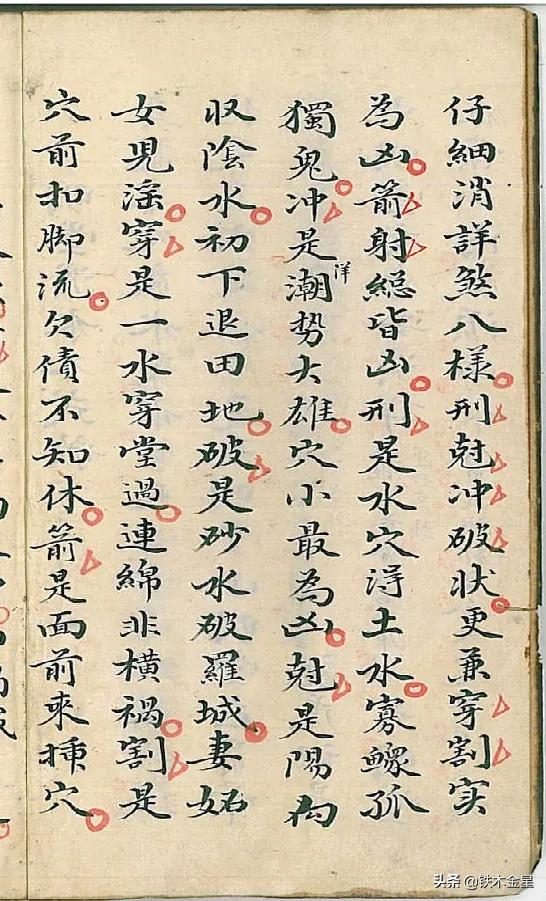 仔細消詳煞八樣刑尅冲破状更兼穿割实
為凶箭射縂皆凶刑是水穴淂土水寡鰥孤
獨鬼冲是潮势大雄穴小最為凶尅是陽向
洋
収陰水初下退田地破是砂水破羅城妻妬
女児滛穿是一水穿堂過連綿非横禍割是
穴前扣脚流欠債不知休箭是面前来揷穴
头条 @铁木金星